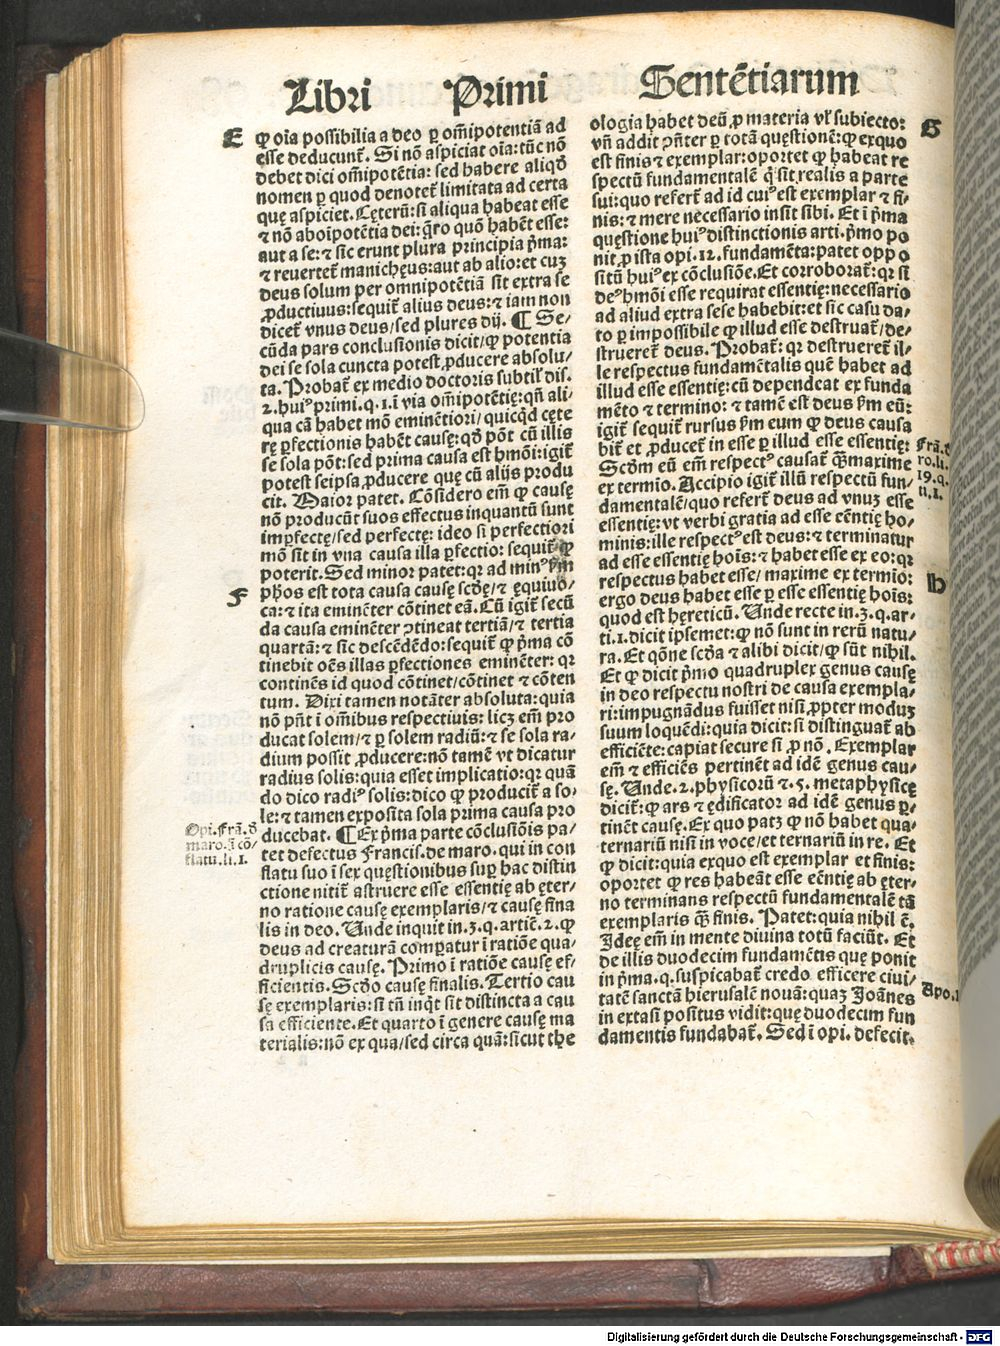 Libri Primi Sentētiarum
E
ꝙ oīa possibilia a deo ꝑ om̄ipotentiā ad
esse deducunt᷑. Si nō aspiciat oīa: tūc nō
debet dici om̄ipotētia: sed habere aliqd̄
nomen ꝑ quod denotet᷑ limitata ad certa
quę aspiciet. Cęterū: si aliqua habeat esse
⁊ nō ab oīpotētia dei: q̄ro quō habēt esse:
aut a se: ⁊ sic erunt plura principia pͥma:
⁊ reuertet᷑ manichęus: aut ab alio: et cuꝫ
deus solum per omnipotētiā sit extra se
ꝓductiuus: sequit᷑ alius deus: ⁊ iam non
dicet᷑ vnus deus/ sed plures dij. ¶ Se/
cūda pars conclusionis dicit/ ꝙ potentia
dei se sola cuncta potest ꝓducere absolu/
ta. Probat᷑ ex medio doctoris subtil᷑ dis.
2. huiꝰ primi. q. 1. ī via om̄ipotētię: qn̄ ali/
qua cā habet mō eminētiori/ quicqd̄ cęte
rę ꝑfectionis habēt causę: qd̄ pōt cū illis
se sola pōt: sed prima causa est hmōi: igit᷑
potest seipsa ꝓducere quę cū alijs produ
cit. Maior patet. Cōsidero em̄ ꝙ causę
nō producūt suos effectus inquantū sunt
imꝑfectę/ sed perfectę: ideo si perfectiori
mō sit in vna causa illa ꝑfectio: sequit᷑ ꝙ
poterit. Sed minor patet: qꝛ ad minꝰ ẜm
F
phōs est tota causa causę scd̄ę/ ⁊ ęquiuo/
ca: ⁊ ita eminēter cōtinet eā. Cū igit᷑ secū
da causa eminēter ꝯtineat tertiā/ ⁊ tertia
quartā: ⁊ sic descēdēdo: sequit᷑ ꝙ pͥma cō
tinebit oēs illas ꝑfectiones eminēter: qꝛ
continēs id quod cōtinet/ cōtinet ⁊ cōten
tum. Dixi tamen notāter absoluta: quia
nō pn̄t ī om̄ibus respectiuis: licꝫ em̄ pro
ducat solem/ ⁊ ꝑ solem radiū: ⁊ se sola ra/
dium possit ꝓducere: nō tamē vt dicatur
radius solis: quia esset implicatio: qꝛ quā
do dico radiꝰ solis: dico ꝙ producit᷑ a so/
le: ⁊ tamen exposita sola prima causa pro
ducebat. ¶ Ex pͥma parte cōclusiōis pa/
tet defectus Francis. de maro. qui in con
flatu suo ī sex quęstionibus suꝑ hac distin
ctione nitit᷑ astruere esse essentię ab ęter/
no ratione causę exemplaris/ ⁊ causę fina
lis in deo. Unde inquit in. 3. q. articł. 2. ꝙ
deus ad creaturā comꝑatur ī ratiōe qua/
druplicis causę. Primo ī ratiōe causę ef/
ficientis. Scd̄o causę finalis. Tertio cau
sę exemplaris: si tn̄ inqͥt sit distincta a cau
sa efficiente. Et quarto ī genere causę ma
terialis: nō ex qua/ sed circa quā: sicut the
Opi. Frā. d̄
maro. ī cō/
flatu. li. 1.
ologia habet deū ꝓ materia vł subiecto:
G
vn̄ addit ꝯn̄ter ꝑ totā quęstionē: ꝙ ex quo
est finis ⁊ exemplar: oportet ꝙ habeat re
spectū fundamentalē qͥ sit realis a parte
sui: quo refert᷑ ad id cuiꝰ est exemplar ⁊ fi/
nis: ⁊ mere necessario insit sibi. Et ī pͥma
quęstione huiꝰ distinctionis arti. pͥmo po
nit ꝓ ista opi. 12. fundamēta: patet oppo
sitū huiꝰ ex cōclusiōe. Et corroborat᷑: qꝛ si
deꝰ hmōi esse requirat essentię: necessario
ad aliud extra sese habebit: et sic casu da/
to ꝑ impossibile ꝙ illud esse destruat᷑/ de/
strueret᷑ deus. Probat᷑: qꝛ destrueret᷑ il/
le respectus fundamētalis quē habet ad
illud esse essentię: cū dependeat ex funda
mēto ⁊ termino: ⁊ tamē est deus ẜm eū:
igit᷑ sequit᷑ rursus ẜm eum ꝙ deus causa
bit᷑ et ꝓducet᷑ in esse ꝑ illud esse essentię:
Scd̄m eū em̄ respectꝰ causat᷑ qͣ maxime
ex termio. Accipio igit᷑ illū respectū fun/
damentalē/ quo refert᷑ deus ad vnuꝫ esse
essentię: vt verbi gratia ad esse eēntię ho/
minis: ille respectꝰ est deus: ⁊ terminatur
ad esse essentię hoīs: ⁊ habet esse ex eo: qꝛ
respectus habet esse/ maxime ex termio:
ergo deus habet esse ꝑ esse essentię hoīs:
quod est hęreticū. Unde recte in. 3. q. ar/
ti. 1. dicit ipsemet: ꝙ nō sunt in rerū natu/
ra. Et qōne scd̄a ⁊ alibi dicit/ ꝙ sūt nihil.
Et ꝙ dicit pͥmo quadruplex genus causę
in deo respectu nostri de causa exempla/
ri: impugnādus fuisset nisi ꝓpter moduꝫ
suum loquēdi: quia dicit: si distinguat᷑ ab
efficiēte: capiat secure si ꝓ nō. Exemplar
em̄ ⁊ efficiēs pertinēt ad idē genus cau/
sę. Unde. 2. physicorū ⁊. 5. metaphysicę
dicit᷑: ꝙ ars ⁊ ędificator ad idē genus ꝑ/
tinēt causę. Ex quo patꝫ ꝙ nō habet qua/
ternariū nisi in voce/ et ternariū in re. Et
ꝙ dicit: quia ex quo est exemplar et finis:
oportet ꝙ res habeāt esse eēntię ab ęter/
no terminans respectū fundamentalē tā
exemplaris qͣ̄ finis. Patet: quia nihil ē.
Ideę em̄ in mente diuina totū faciūt. Et
de illis duodecim fundamētis quę ponit
in pͥma. q. suspicabat᷑ credo efficere ciui/
tatē sanctā hierusalē nouā: quaꝫ Joānes
in extasi positus vidit: quę duodecim fun
damentis fundabat᷑. Sed ī opi. defecit.
Frā. d̄
ro. li.
19. q.
ti. 1.
H
Apo.
Digitalisierung gefördert durch die Deutsche Forschungsgemeinschaft - DFG